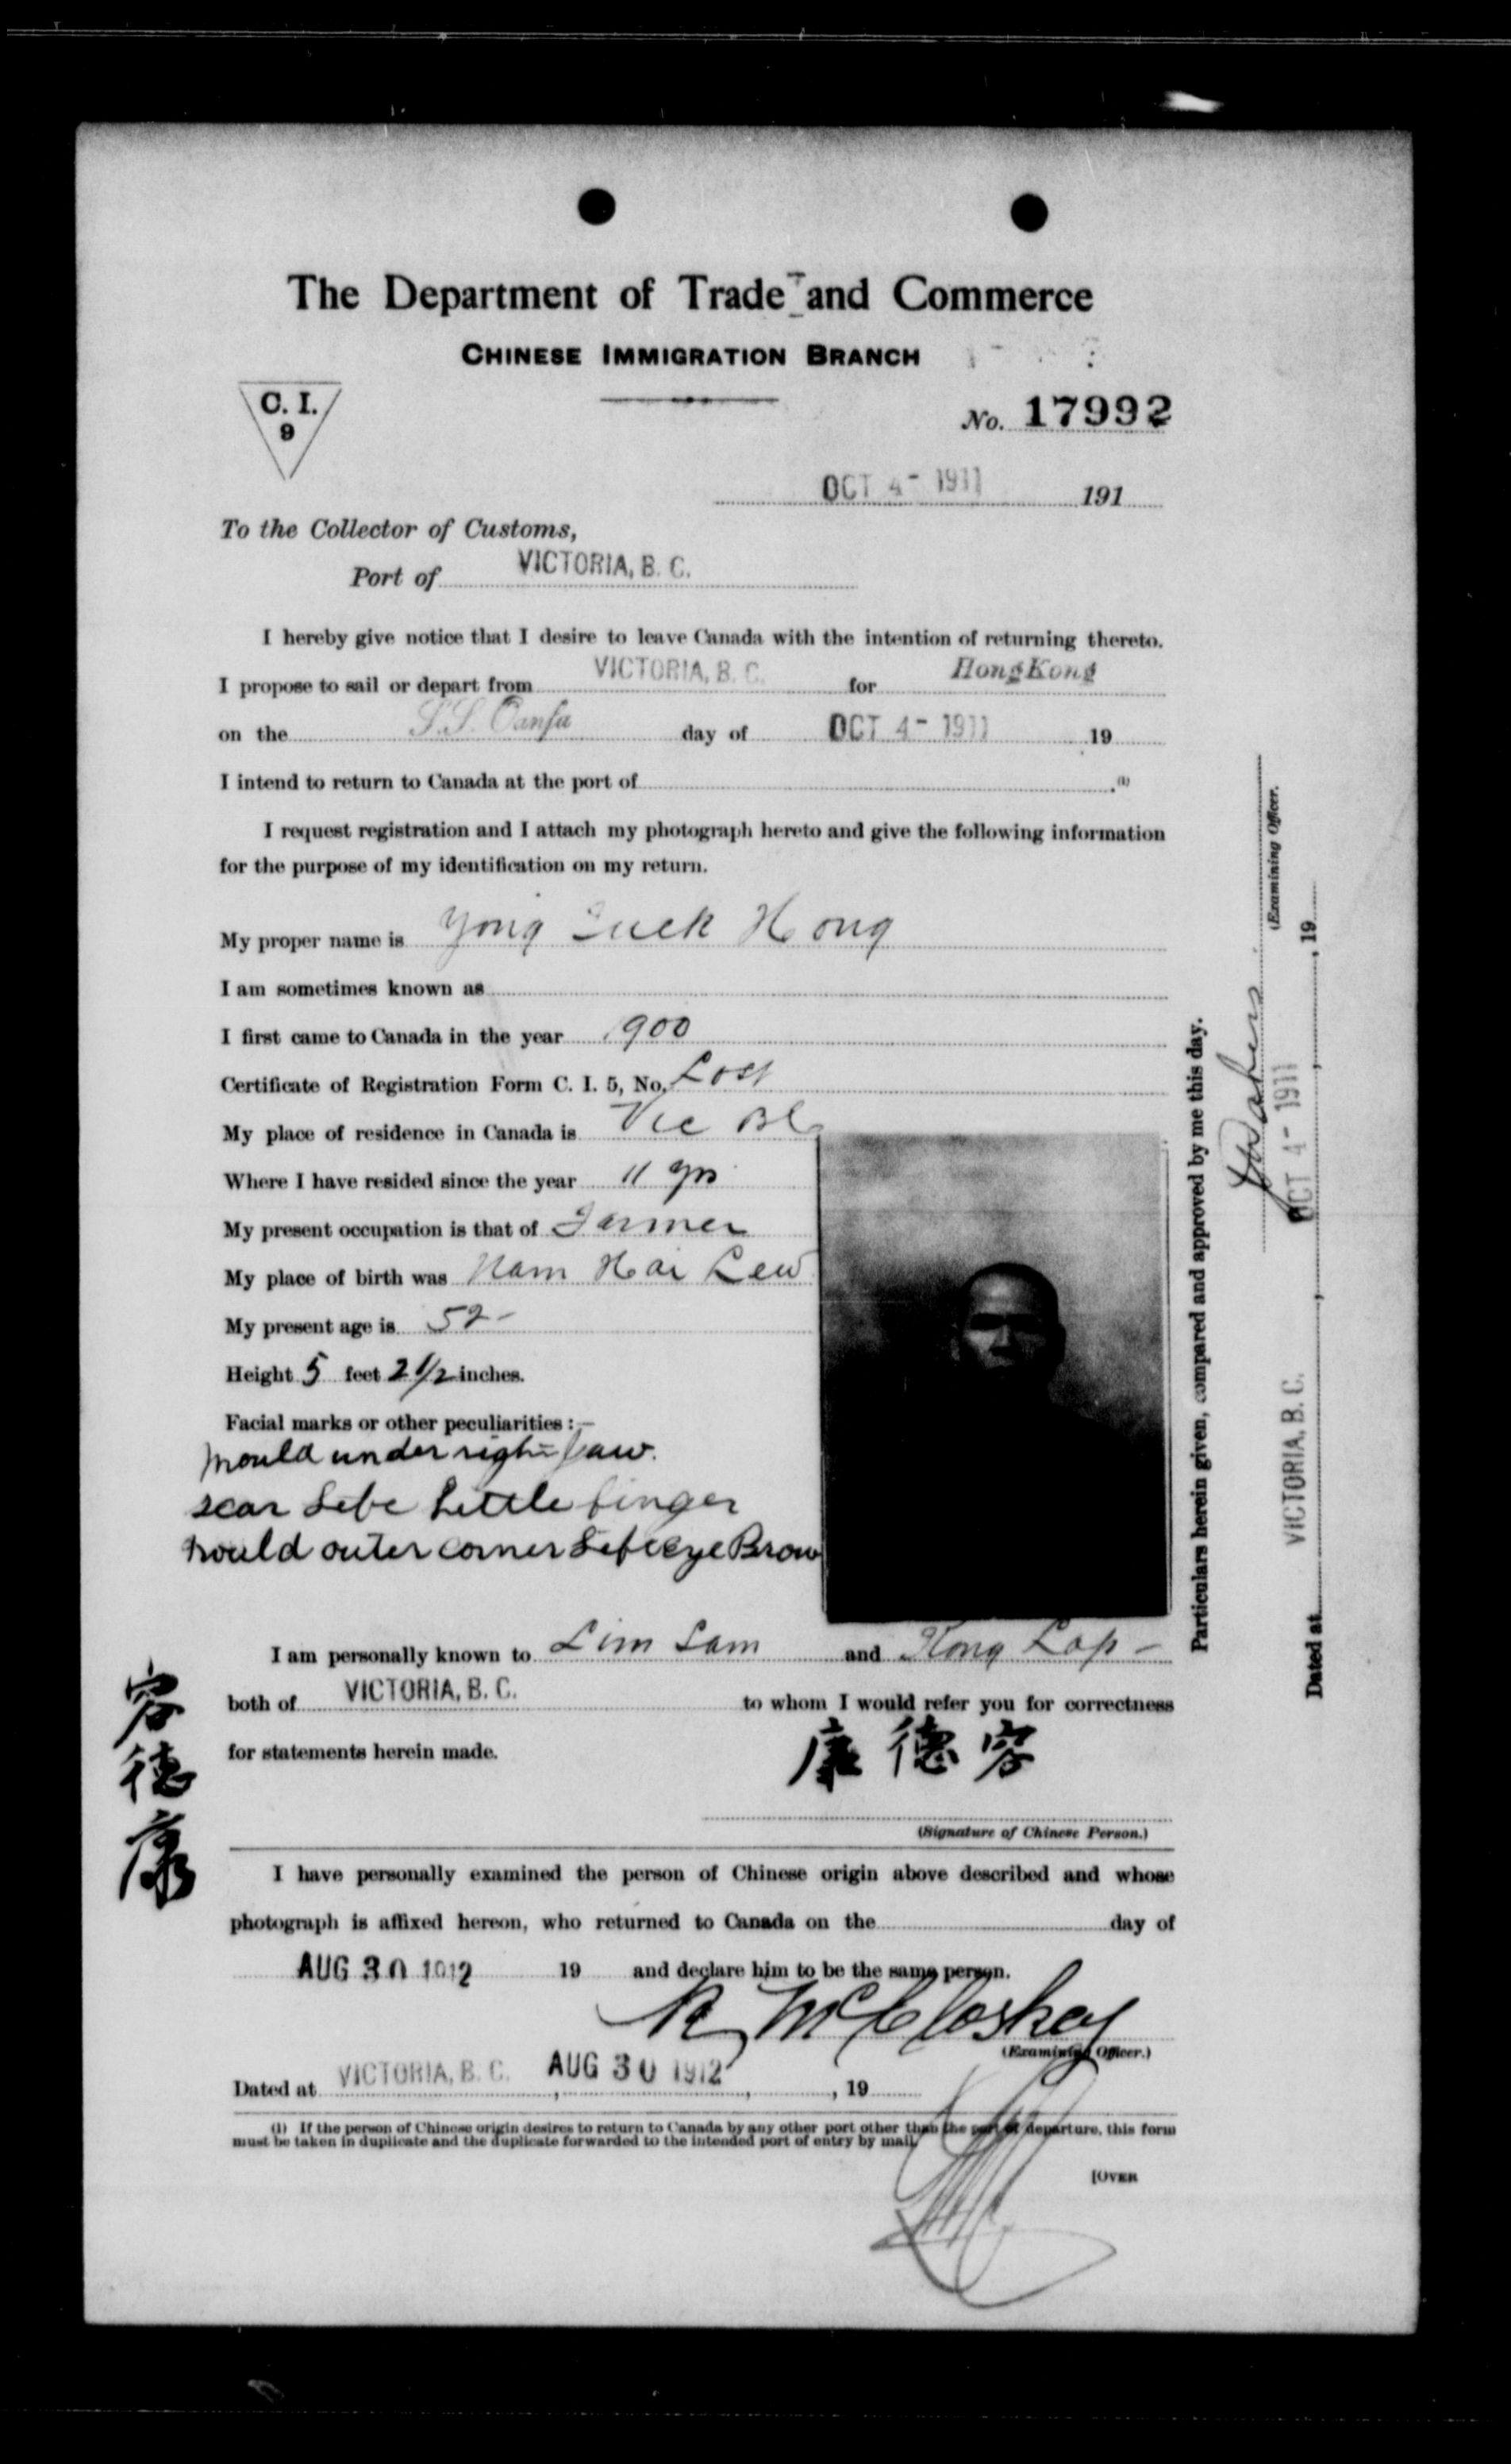 The Department of Trade and Commerce
CHINESE IMMIGRATION BRANCH
C. I.
9
No. 17992
OCT 4- 1911 191
To the Collector of Customs,
Port of VICTORIA, B. C.
I hereby give notice that I desire to leave Canada with the intention of returning thereto.
I propose to sail or depart from VICTORIA, B. C. for HongKong
on the S.S. Oanfa day of OCT 4- 1911 19
I intend to return to Canada at the port of .(1)
I request registration and I attach my photograph hereto and give the following information
for the purpose of my identification on my return.
My proper name is Yong Hong
I am sometimes known as
I first came to Canada in the year 1900
Certificate of Registration Form C. I. 5, No. Lost
My place of residence in Canada is Vic BC
Where I have resided since the year 11 yrs
My present occupation is that of Farmer
My place of birth was Nam Hoi Lew
My present age is 52-
Height 5 feet 2 1/2 inches.
Facial marks or other peculiarities :—
Mould under right jaw.
scar Left Little finger
mould outer corner Left eye Brow
I am personally known to Lim Sam and Kong Lap -
both of VICTORIA, B. C. to whom I would refer you for correctness
for statements herein made.
康德容
(Signature of Chinese Person.)
容德康
I have personally examined the person of Chinese origin above described and whose
photograph is affixed hereon, who returned to Canada on the day of
AUG 30 1912 19 and declare him to be the same person.
R McCloskey
(Examining Officer.)
Dated at VICTORIA, B. C. , AUG 30 1912 , , 19
(1) If the person of Chinese origin desires to return to Canada by any other port other than the port of departure, this form
must be taken in duplicate and the duplicate forwarded to the intended port of entry by mail.
[OVER
Particulars herein given, compared and approved by me this day.
(Examining Officer.
Dated at VICTORIA, B. C. , OCT 4- 1911 , 19